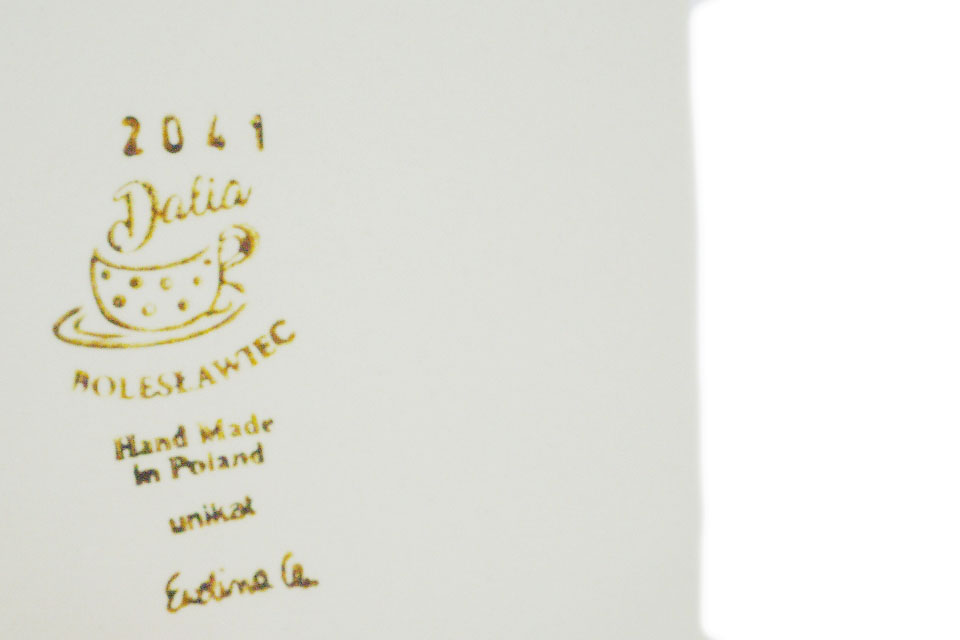 2041
Dalia
BOLESŁAWIEC
Hand Made
In Poland
unikat
Ewelina